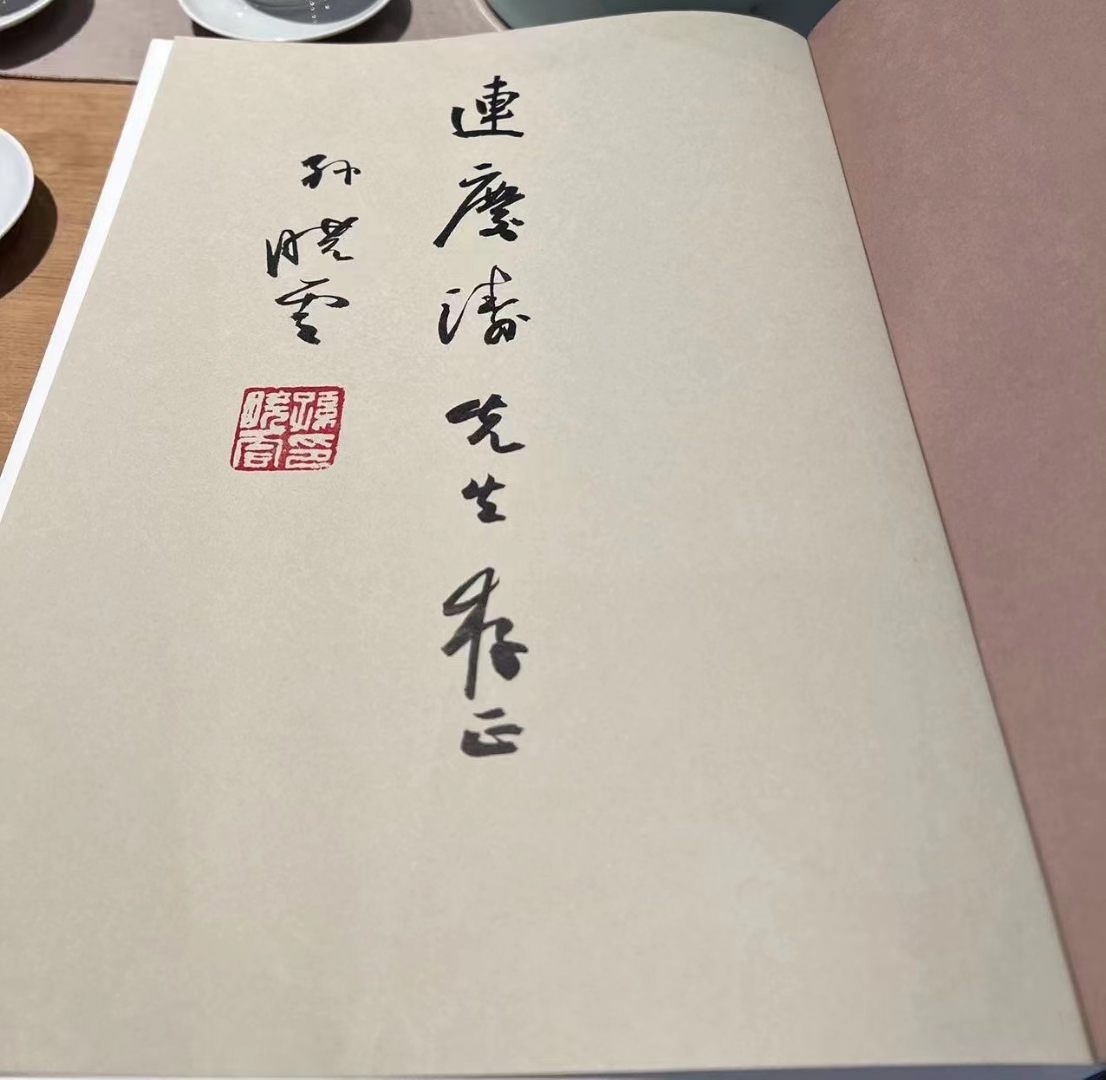 連慶濤先生存正
孫曉雲
孫曉雲印